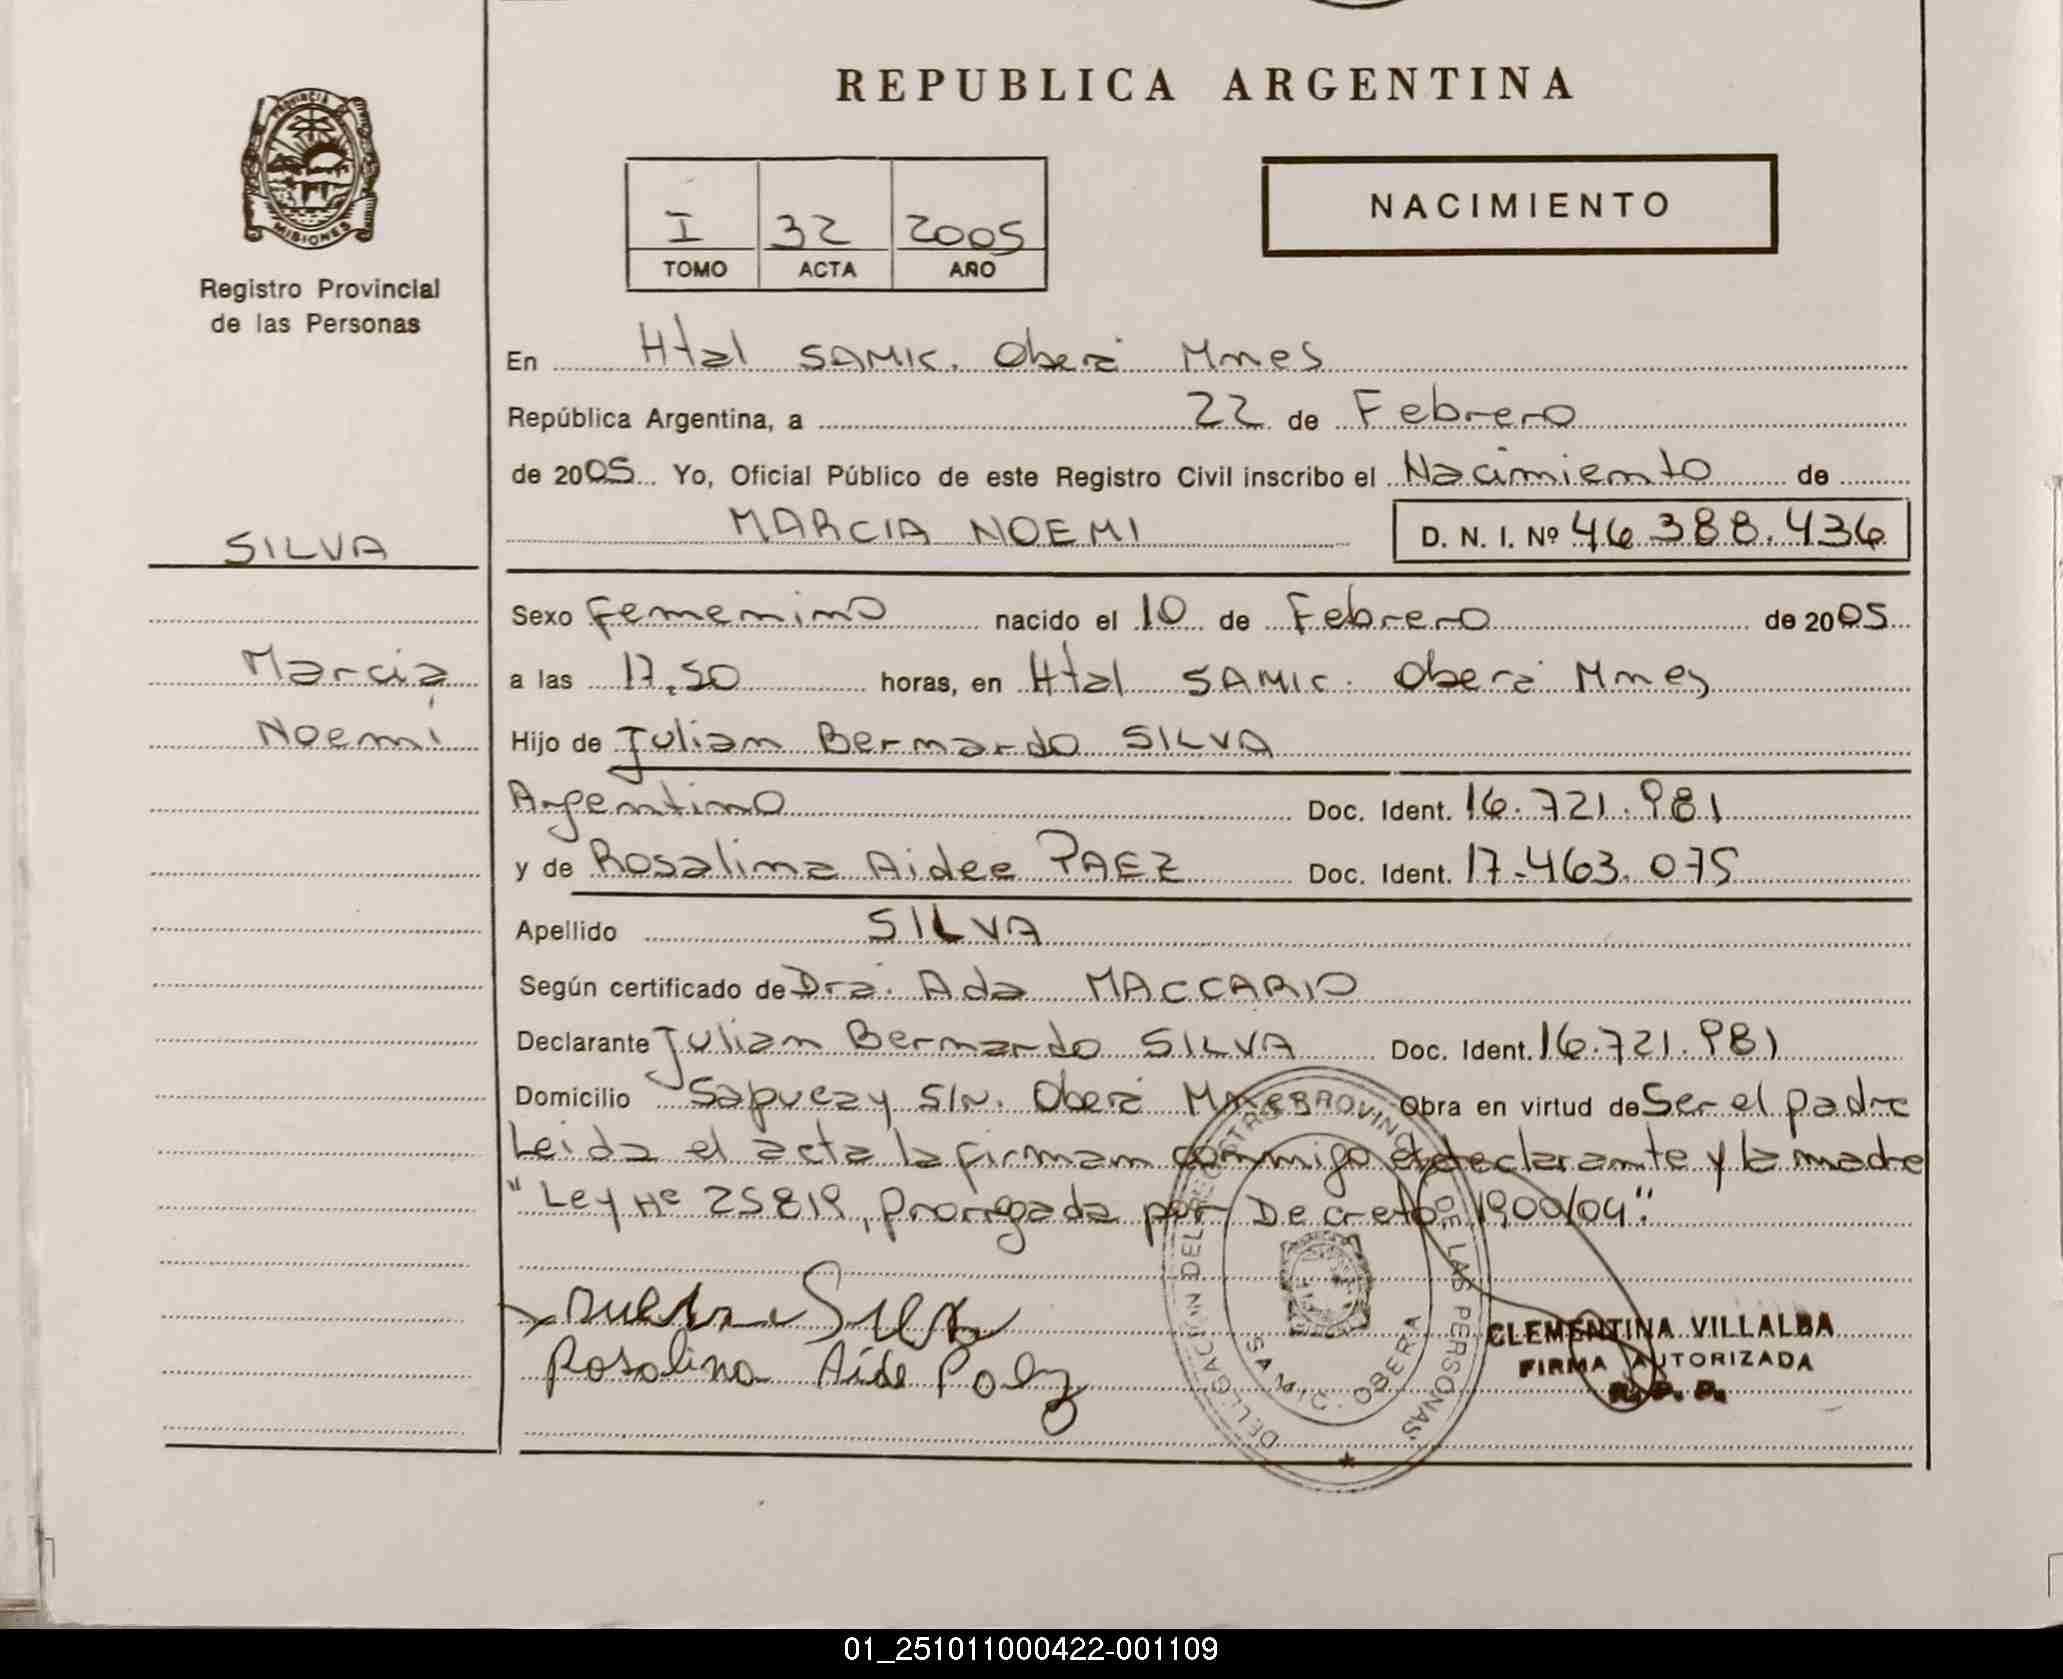 REPUBLICA ARGENTINA
PROVINCIA
MISIONES
Registro Provincial
de las Personas
NACIMIENTO
I 32 2005
TOMO ACTA AÑO
En Htal SAMIC. Oberá Mnes
República Argentina, a 22 de Febrero
de 2005 Yo, Oficial Público de este Registro Civil inscribo el Nacimiento de
SILVA
MARCIA NOEMI D. N. I. Nº 46.388.436
Sexo Femenino nacido el 10 de Febrero de 2005
Marcia
a las 17,50 horas, en Htal SAMIC. Oberá Mnes
Noemí
Hijo de Julian Bernardo SILVA
Argentino Doc. Ident. 16.721.981
y de Rosalina Aidee PAEZ Doc. Ident. 17.463.075
Apellido SILVA
Según certificado de Dra. Ada MACCARIO
Declarante Julian Bernardo SILVA Doc. Ident. 16.721.981
Domicilio Sapucay S/N. Oberá Mnes Obra en virtud de Ser el padre
Leida el acta la firman conmigo el declarante y la madre
"Ley Nº 25819, prorrogada por Decreto 1900/04".
Silva
Rosalina Aide Paez
DELEGACION DEL REGISTRO PROVINCIAL DE LAS PERSONAS
SAMIC. OBERA
CLEMENTINA VILLALBA
FIRMA AUTORIZADA
R. P. P.
01_251011000422-001109